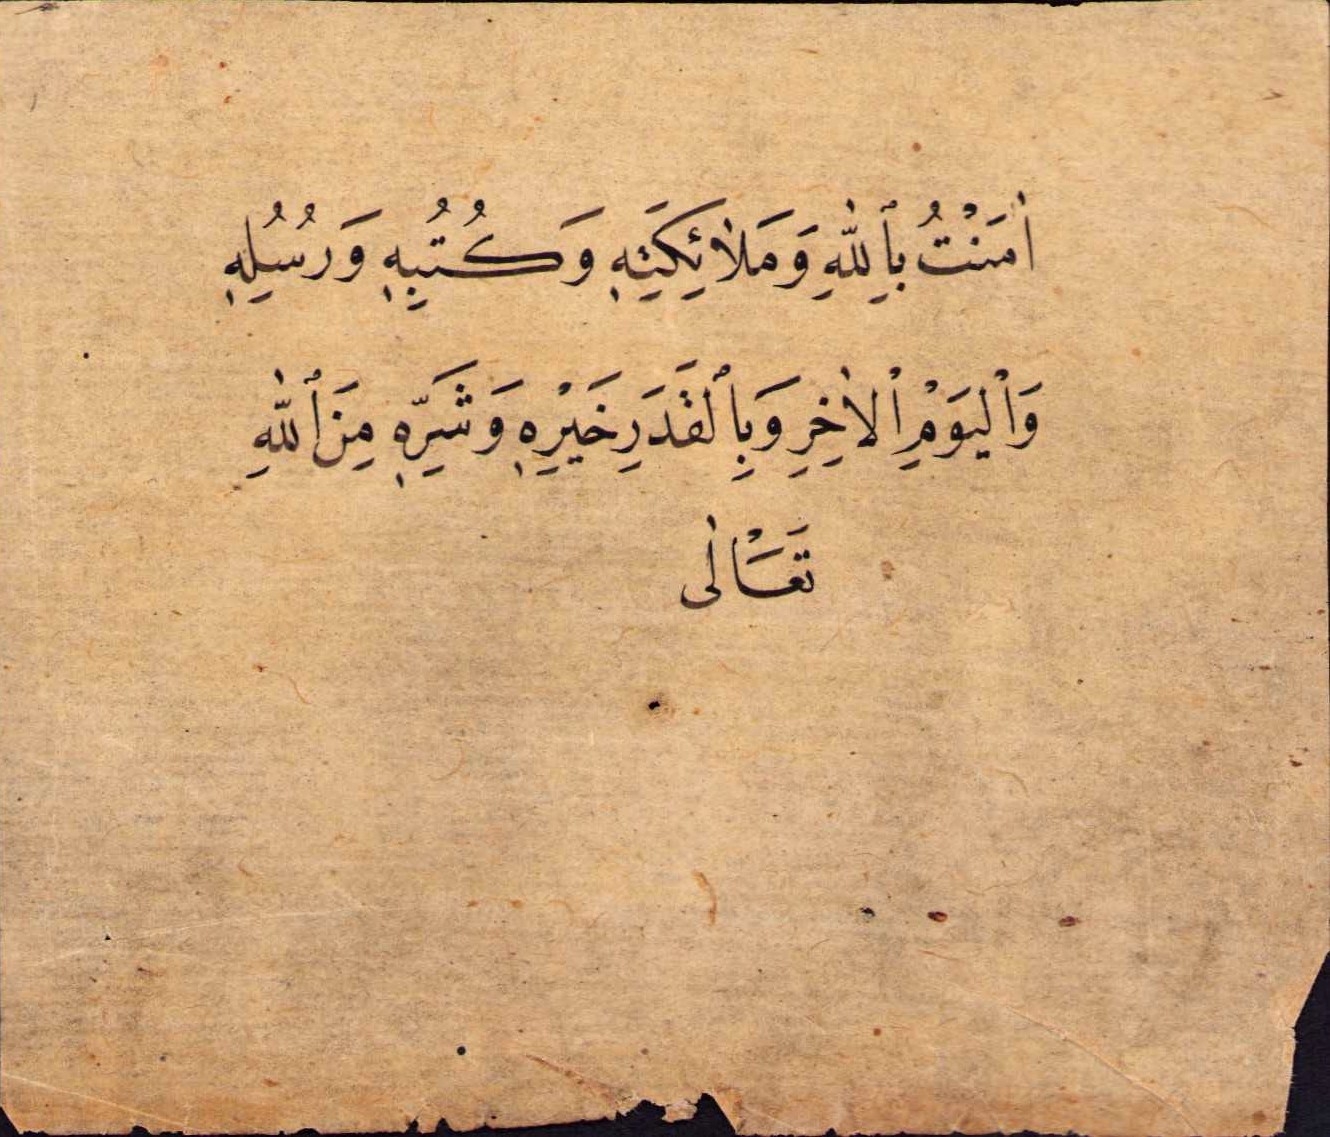 اٰمَنْتُ بِٱللّٰهِ وَمَلٰائِكَتِهٖ وَكُتُبِهٖ وَرُسُلِهٖ
وَالْيَوْمِ الْاٰخِرِ وَبِٱلْقَدَرِ خَيْرِهٖ وَشَرِّهٖ مِنَ ٱللّٰهِ
تَعَالٰى